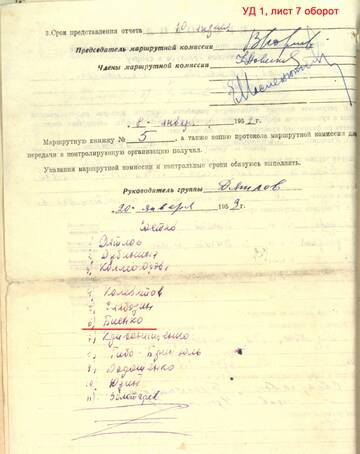 УД 1, лист 7 оборот
3. Срок представления отчета
Председатель маршрутной комиссии
Члены маршрутной комиссии
8 января 1959 г.
Маршрутную книжку № 5, а также копию протокола маршрутной комиссии для
передачи в контролирующую организацию получил.
Указания маршрутной комиссии и контрольные сроки обязуюсь выполнять.
Руководитель группы Дятлов
20 января 1959 г.
1) Дятлов
2) Дубинина
3) Колмогорова
4) Колеватов
5) Слободин
6) Биенко
7) Кривонищенко
8) Тибо-Бриньоль
9) Дорошенко
10) Юдин
11) Золотарев